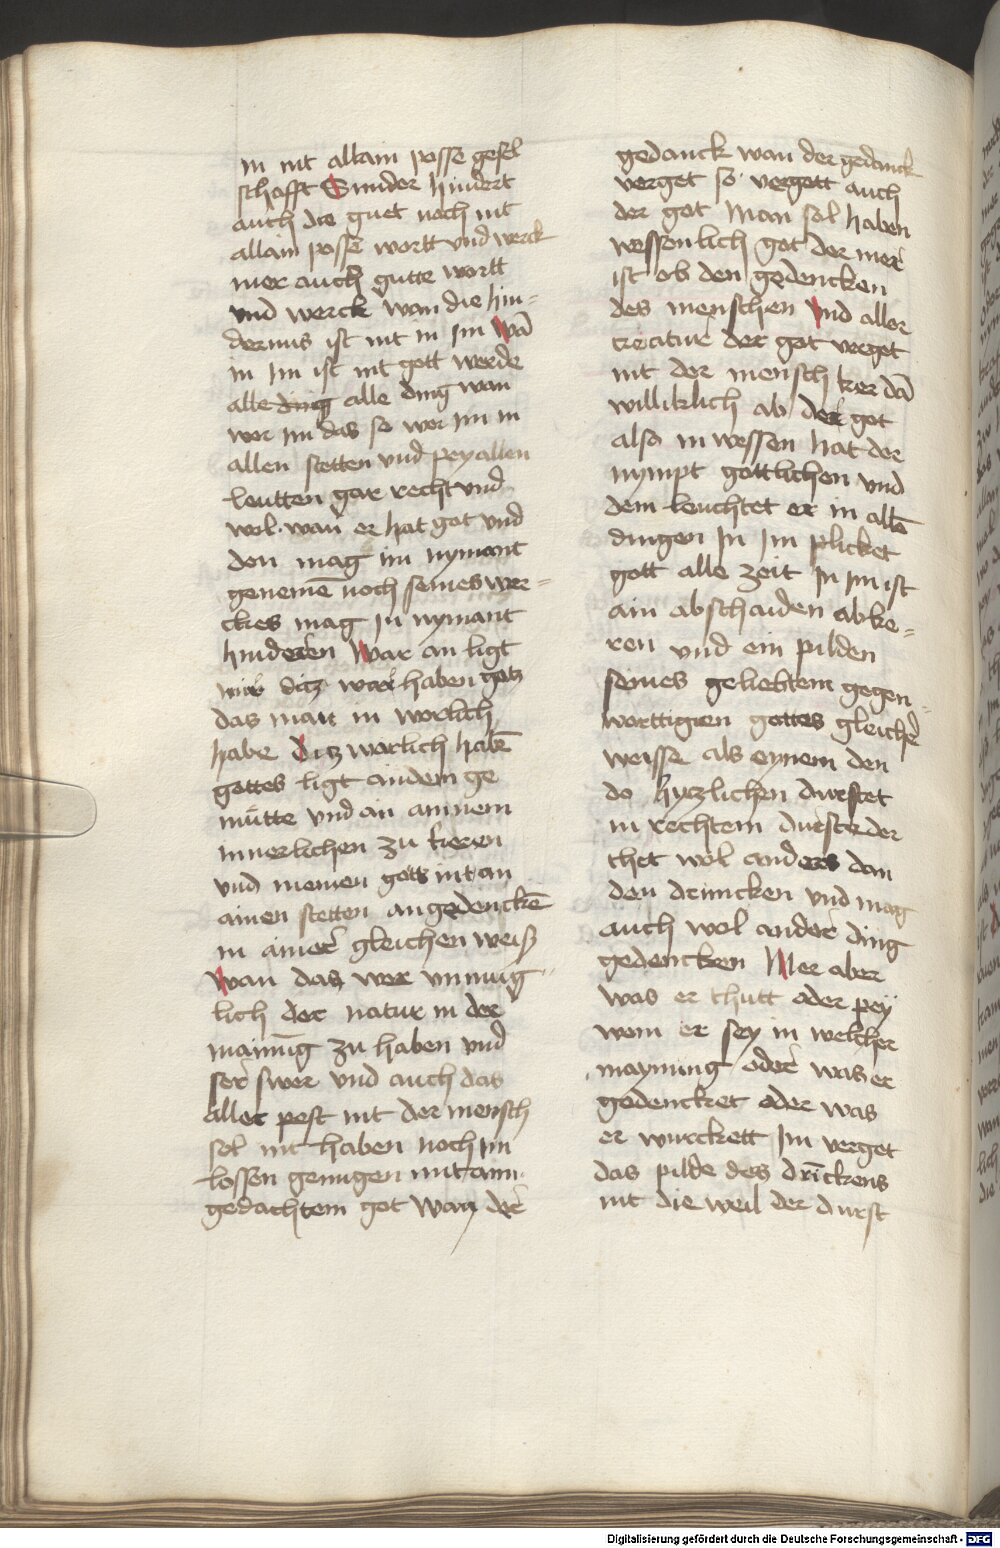 in nit allain posse gesel
schafft Sunder hindert
auch die guet noch nit
allain posse wortt vnd werck
mer auch gutte wortt
vnd werck wan die hin-
dernus ist nit in Im wā
in Im ist nit gott werde
alle ding alle ding wan
wer im das so wer im in
allen stetten vnd pey allen
leutten gar recht vnd
wol. wan er hat got vnd
den mag im nymant
genemē noch seines wer-
ckes mag in nymant
hinderen War an ligt
ditz war haben gotz
das man in worlich
habe ditz warlich habē
gottes ligt an dem ge
mütte vnd an ainnem
innerlichen zu keren
vnd meinen gots nit an
ainen stetten an gedenckē
in ainer gleichen weiß
wan das wer vnmüg-
lich der natur in der
mainūg zu haben vnd
ser swer vnd auch das
aller pest nit der mensch
sol nit haben noch im
lossen genugen mit aim
gedachtem got wan der
gedanck wan der gedanck
verget so vergett auch
der got Man sol haben
wessenlich got der mer
ist ob den gedencken
des menschen vnd aller
creatur der got verget
nit der mensch ker dā
williklich ab der got
also in wessen hat der
nympt gottlichen vnd
dem leuchtet er in allē
dingen In Im plicket
gott alle zeit In im ist
ain abschaiden abke-
ren vnd ein pilden
seines geliebtem gegen-
worttigen gottes gleichē
weisse als eynem den
do hytzlichen durstet
in rechtem durster der
thet wol anders dan
den drincken vnd mag
auch wol ander ding
gedencken Mer aber
was er thutt oder pey
wem er sey in welcher
maynung oder was er
gedencket oder was
er wurckett Im verget
das pilde des drīckens
nit die weil der durst
Digitalisierung gefördert durch die Deutsche Forschungsgemeinschaft - DFG